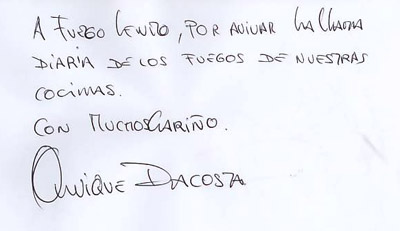 A FUEGO LENTO, POR AVIVAR LA LLAMA
DIARIA DE LOS FUEGOS DE NUESTRAS
COCINAS.
CON MUCHO CARIÑO.
QUIQUE DACOSTA